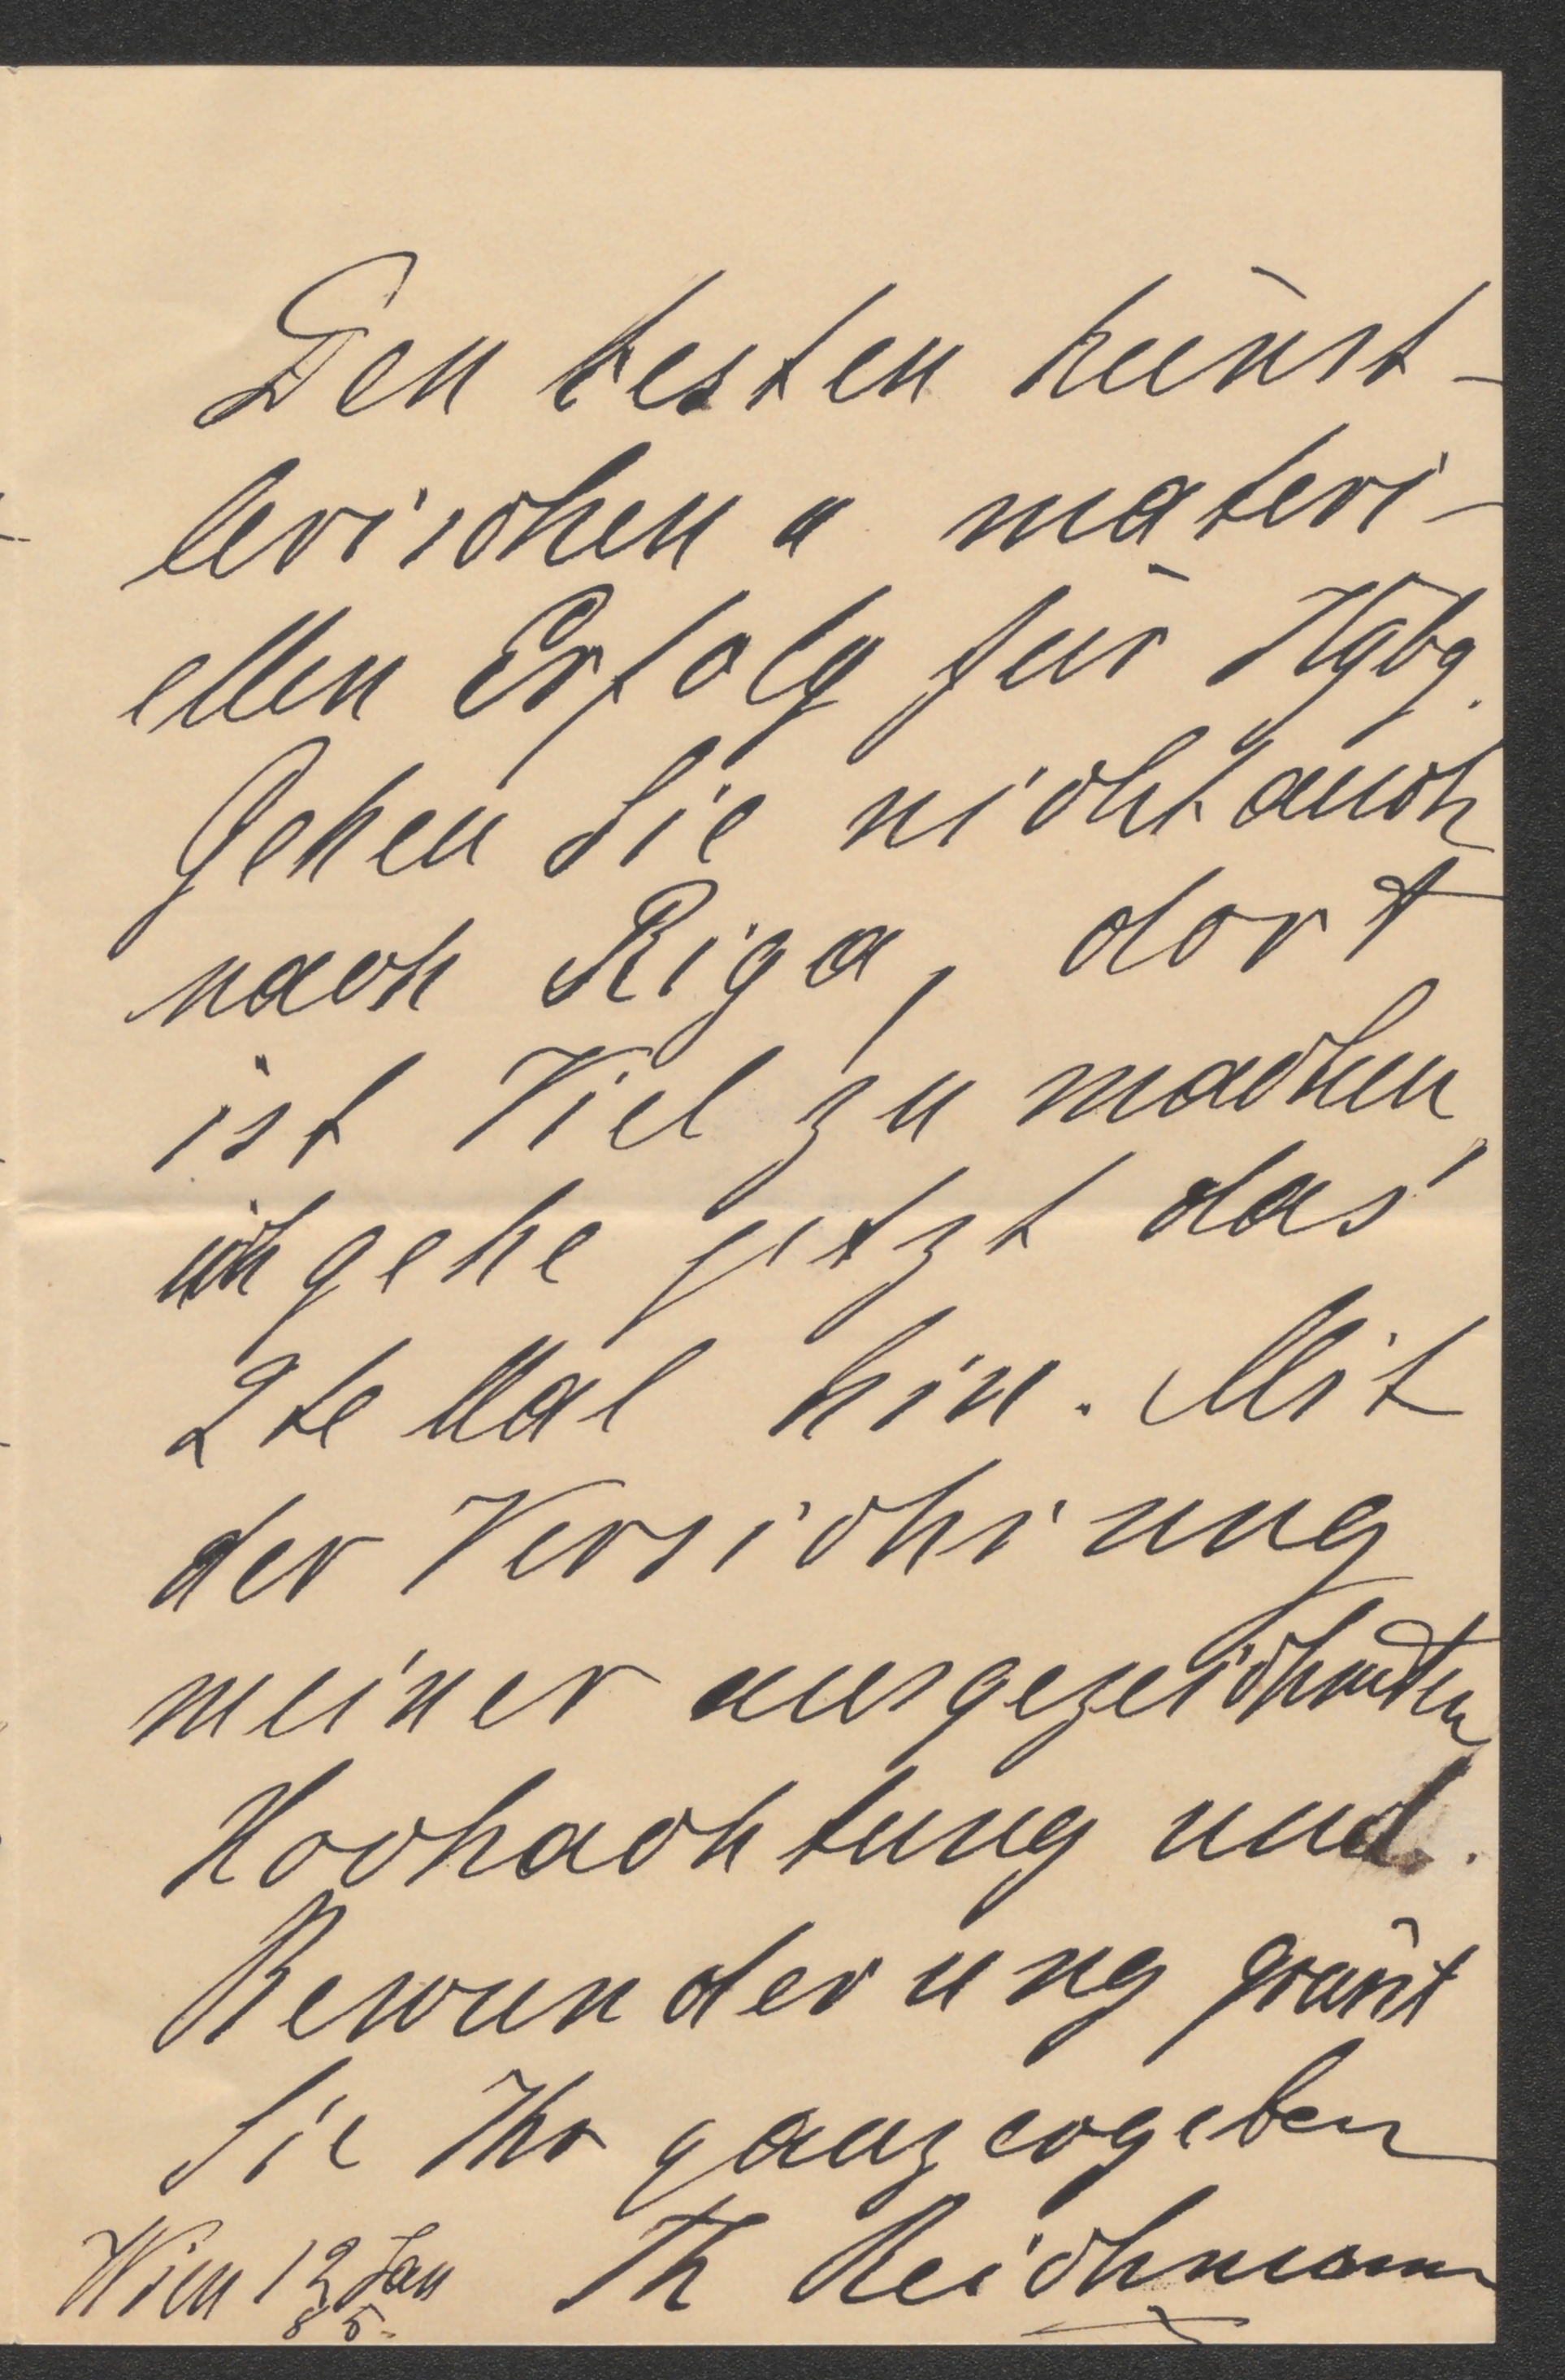 Den besten künst-
lerischen u materi-
ellen Erfolg für Kgbg.
Gehen Sie nicht auch
nach Riga, dort
ist Viel zu machen,
ich gehe jetzt das
2te Mal hin. Mit
der Versichrung
meiner ausgezeichneten
Hochachtung und
Bewunderung grüßt
Sie Ihr ganz ergeben
Wien 12 Jan Th Reichmann
85.